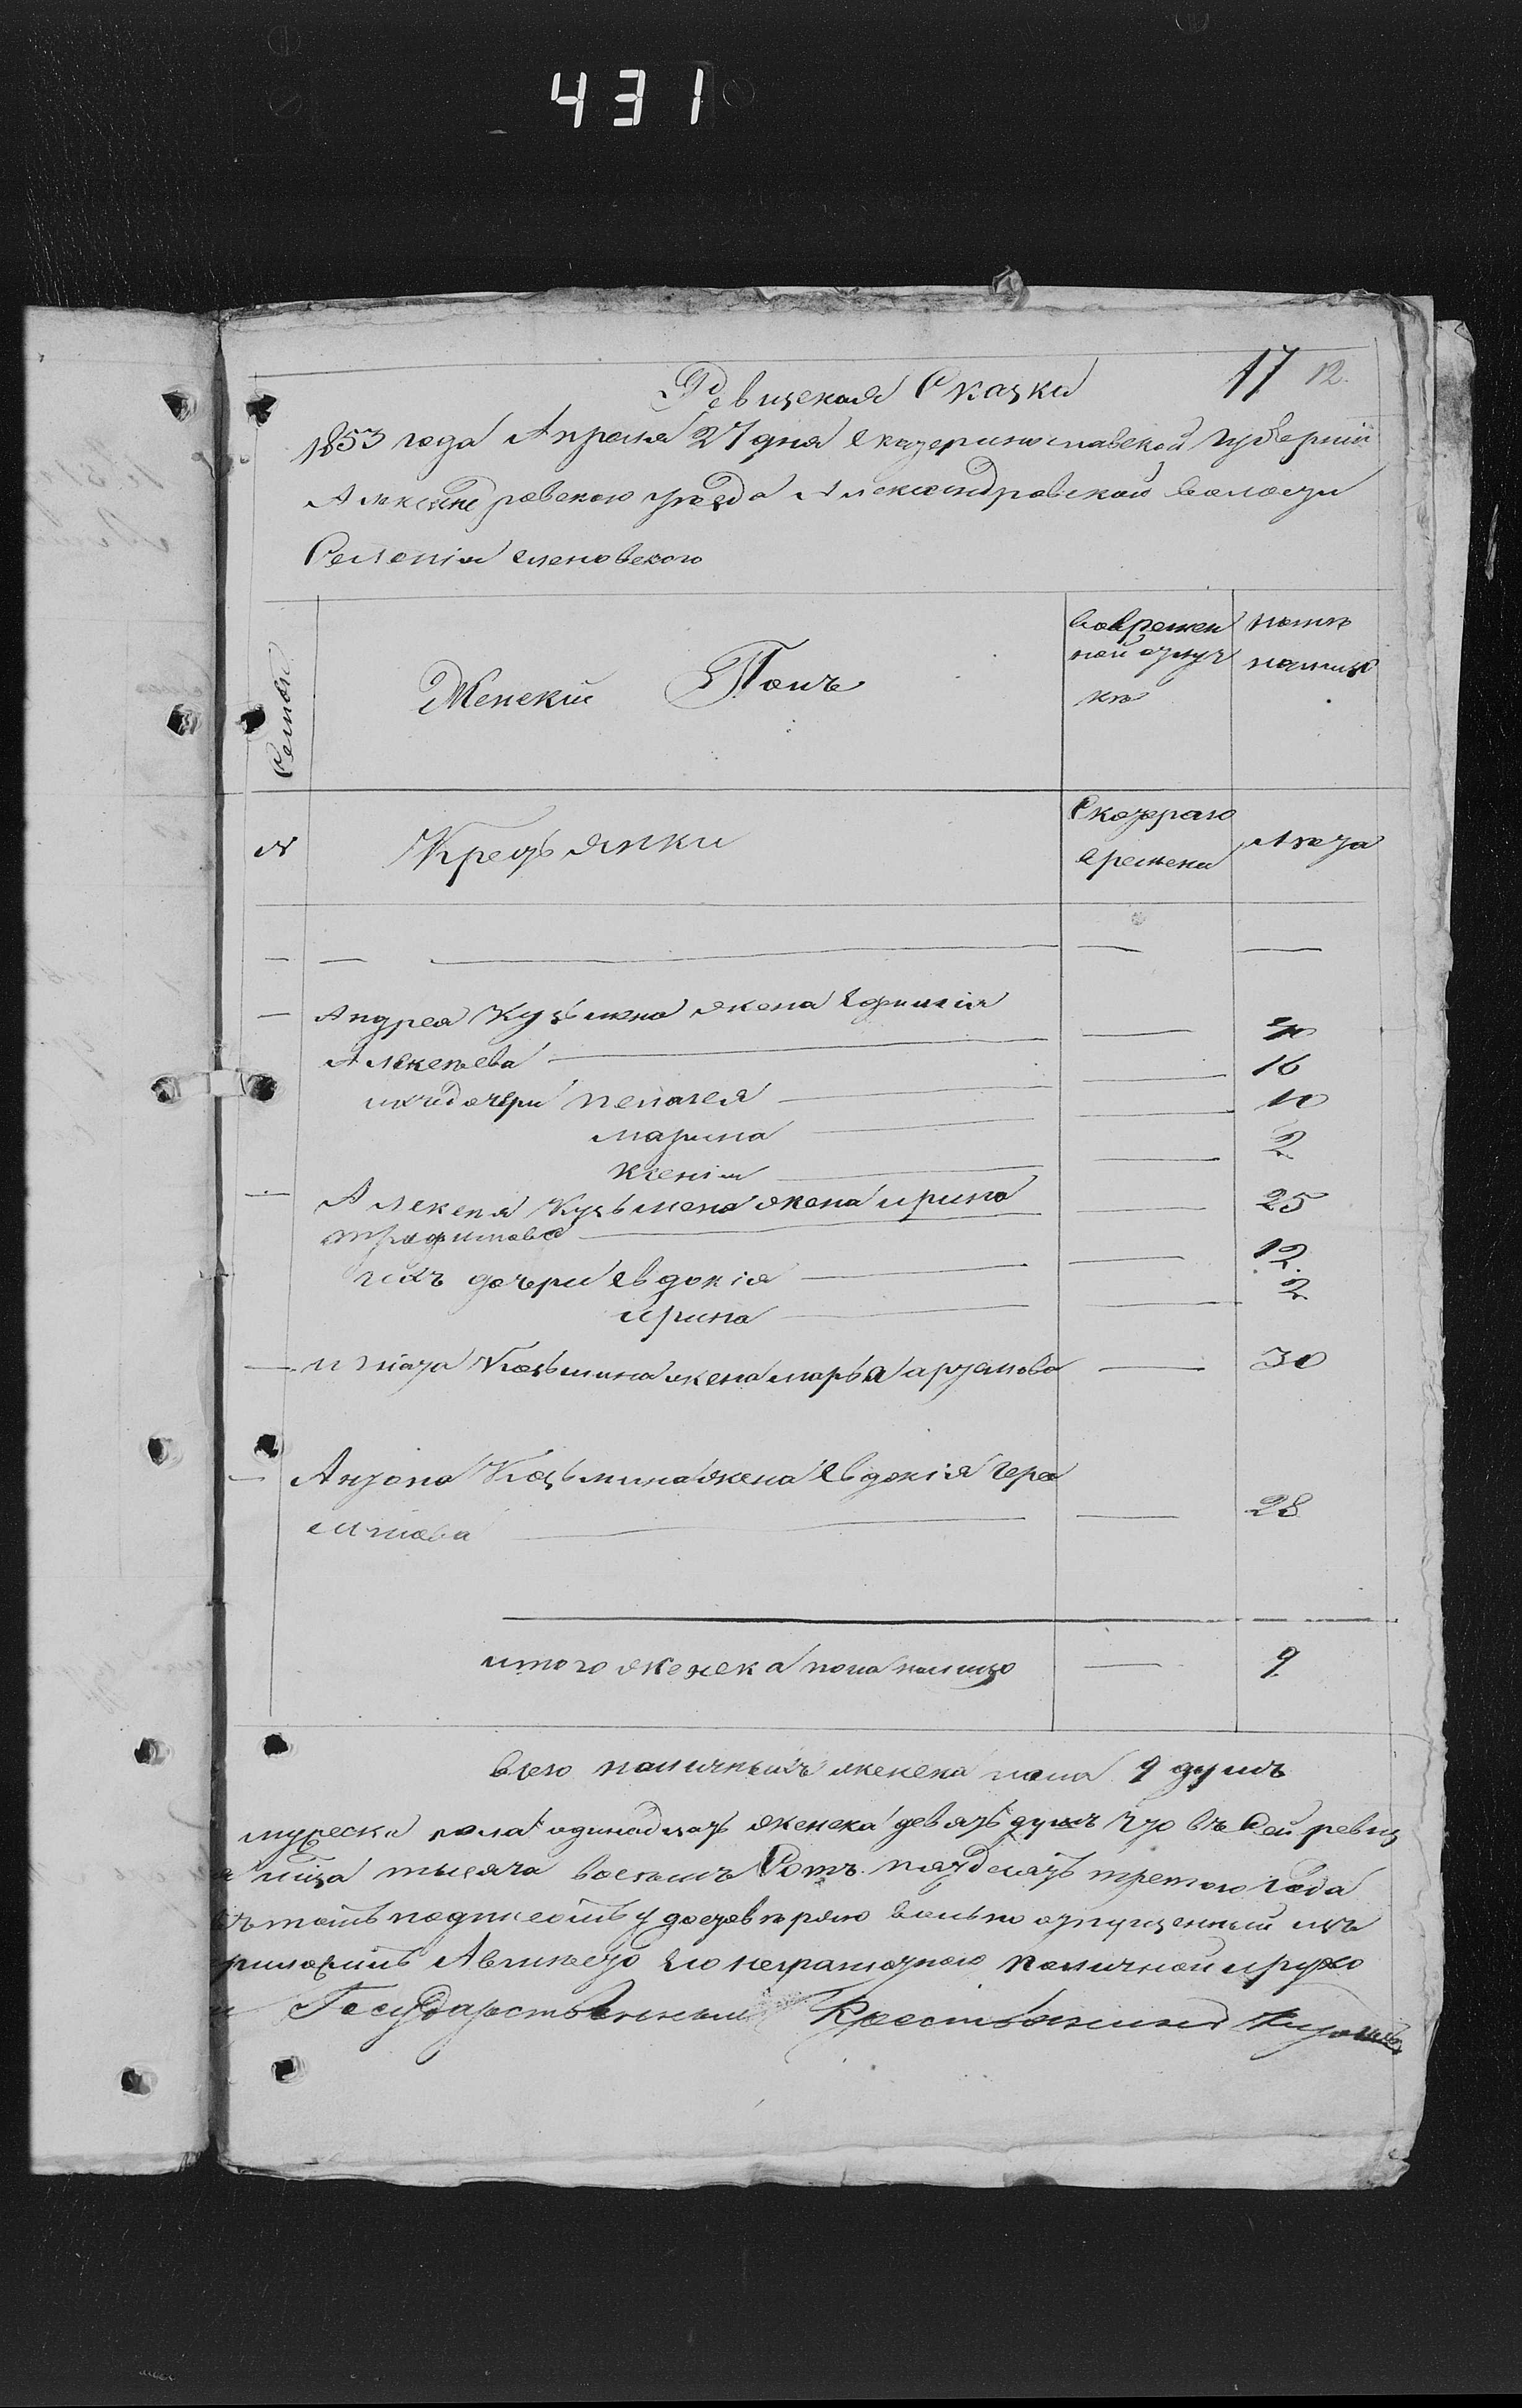 431
17 12.
Ревизская Сказка
1853 года Апреля 27 дня Екатеринославской Губернии
Александровского уезда Александровской волости
Селения еленовского
Семьи
Женский Полъ
вовремен
ной отлуч
ке
ныне
налицо
№
Крестьянки
Скоторого
времени
Лета
Андрея Кузьмена жена Ефимия
Алексеева
ихъ дочери пелагея 16
марина 10
Ксения 2
Алексея Кузьмена жена ирина 25
трофимова
ихъ дочери Евдокия 12.
ирина 2
игната Козьмина жена марья артемова 30
Антона Козьмина жена Евдокия Гера
симова 28
итого женска пола налицо 9
всего наличныхъ женска пола 9 душъ
мужеска пола одинадцать женска девять душъ что въ Сей ревиз
тысяча восемь Сотъ пятдесятъ третого Года
подписомъ удостоверяю вольно отпущенный изъ
его неграмотного
Государственный Крестьянинъ